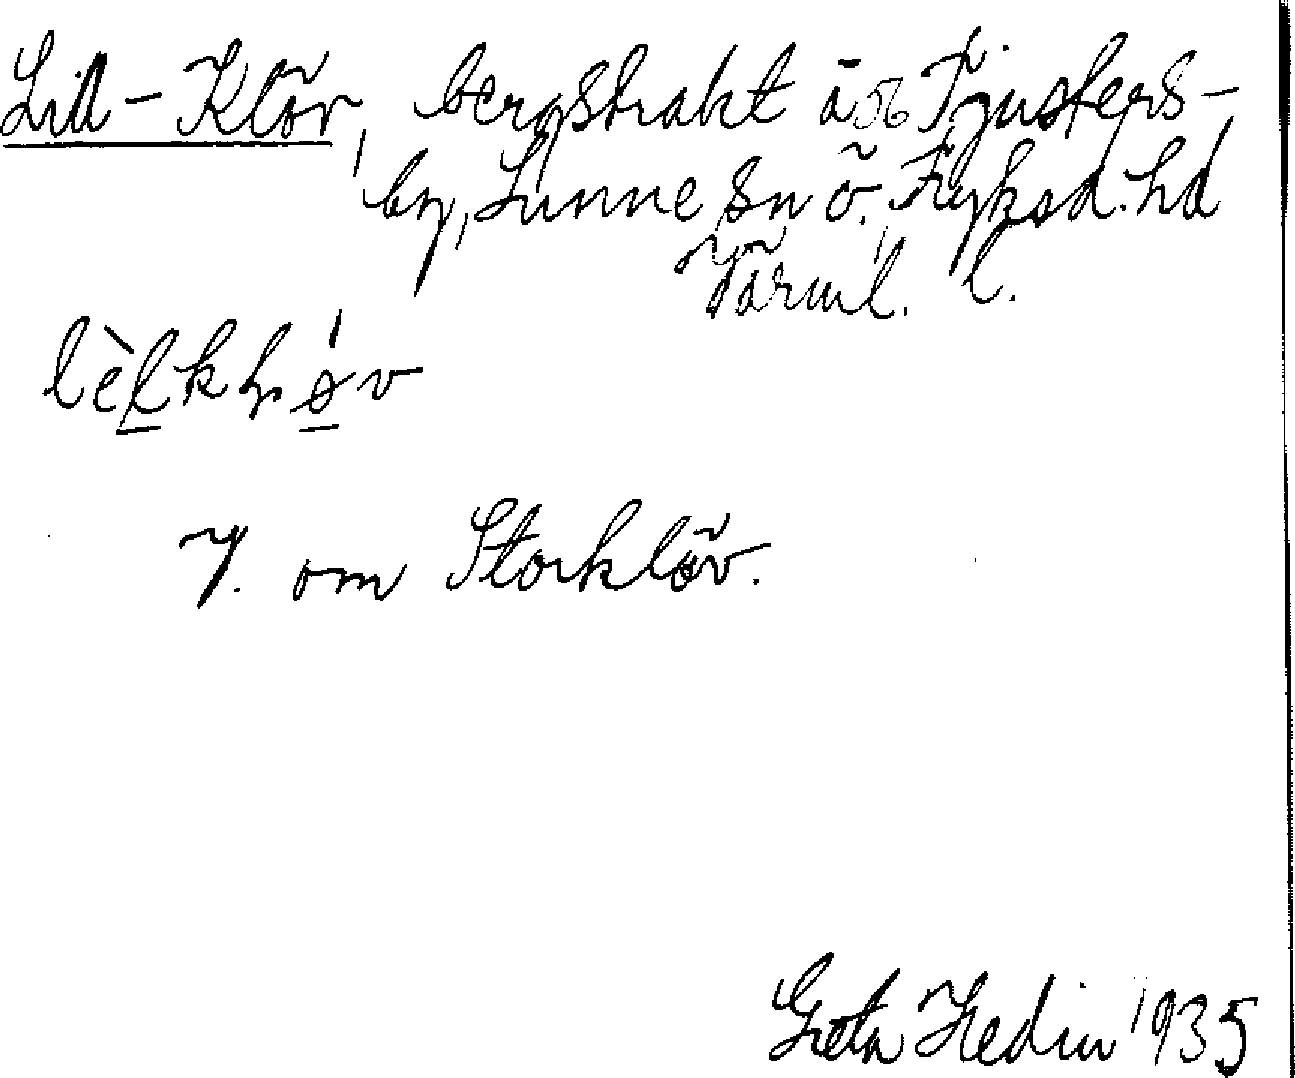 Lill-Klöv, bergstrakt å 56 Tjusters-
by, Sunne sn Ö. Fryksd. hd
Värml. l.
J. om Storklöv.
Greta Hedin 1935